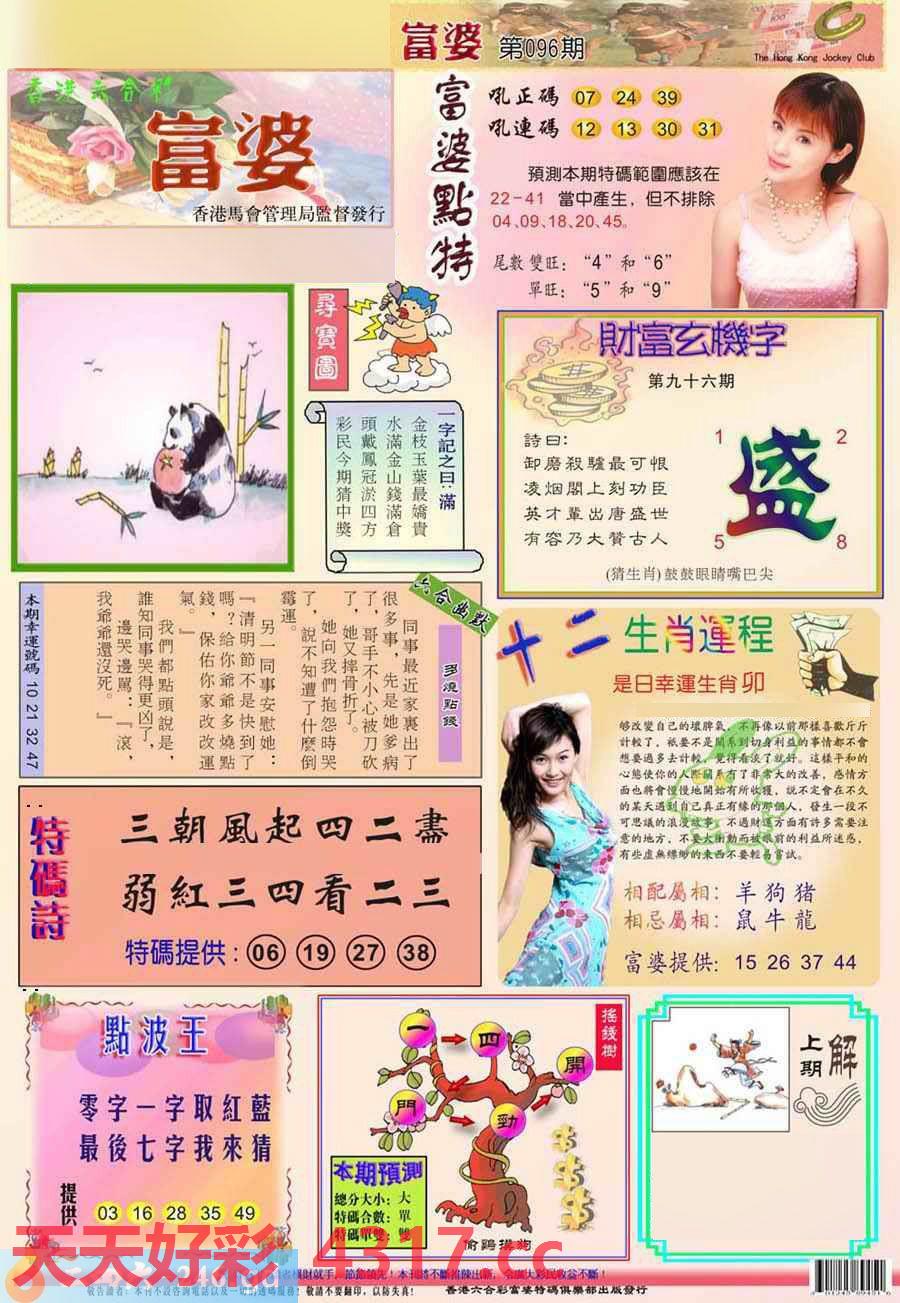 富婆 第096期
The Hong Kong Jockey Club
香港六合彩
富婆
香港馬會管理局監督發行
富婆點特
吼正碼 07 24 39
吼連碼 12 13 30 31
預測本期特碼範圍應該在
22-41 當中產生，但不排除
04、09、18、20、45。
尾數雙旺：“4”和“6”
單旺：“5”和“9”
尋寶圖
一字記之曰：滿
金枝玉葉最嬌貴
水滿金山錢滿倉
頭戴鳳冠淤四方
彩民今期猜中獎
財富玄機字
第九十六期
詩曰：
卸磨殺驢最可恨
凌烟閣上刻功臣
英才輩出唐盛世
有容乃大贊古人
1 2
盛
5 8
(猜生肖)鼓鼓眼睛嘴巴尖
六合幽默
多燒點錢
同事最近家裏出了
很多事，先是她爹病
了，哥手不小心被刀砍
了，她又摔骨折了。
她向我們抱怨時哭
了，說不知遭了什麽倒
霉運。
另一同事安慰她：
『清明節不是快到了
嗎？給你爺爺多燒點
錢，保佑你家改改運
氣。』
我們都點頭說是，
誰知同事哭得更凶了，
邊哭邊罵：『滾，
我爺爺還沒死。』
本期幸運號碼 10 21 32 47
十二生肖運程
是日幸運生肖卯
够改變自己的壞脾氣，不再像以前那樣喜歡斤斤
計較了，祇要不是關系到切身利益的事情都不會
想要過多去計較，覺得看淡了就好。這樣平和的
心態使你的人際關系有了非常大的改善，感情方
面也將會慢慢地開始有所收獲，說不定會在不久
的某天遇到自己真正有緣的那個人，發生一段不
可思議的浪漫故事；不過財運方面有許多需要注
意的地方，不要太衝動而被眼前的利益所迷惑，
有些虛無縹緲的東西不要輕易嘗試。
相配屬相：羊狗豬
相忌屬相：鼠牛龍
富婆提供：15 26 37 44
特碼詩
三朝風起四二盡
弱紅三四看二三
特碼提供：06 19 27 38
點波王
零字一字取紅藍
最後七字我來猜
提供 03 16 28 35 49
搖錢樹
一 四 開
門 勁
本期預測
總分大小：大
特碼合數：單
特碼單雙：雙
偷鷄摸狗
上期解
天天好彩 4317cc
橫財就手，節節領先！本刊將不斷推陳出新，令廣大彩民收益不斷！
敬告讀者：本刊不設咨詢電話以及一切的透碼服務！敬請不要翻印，以防失真！
香港六合彩富婆特碼俱樂部出版發行